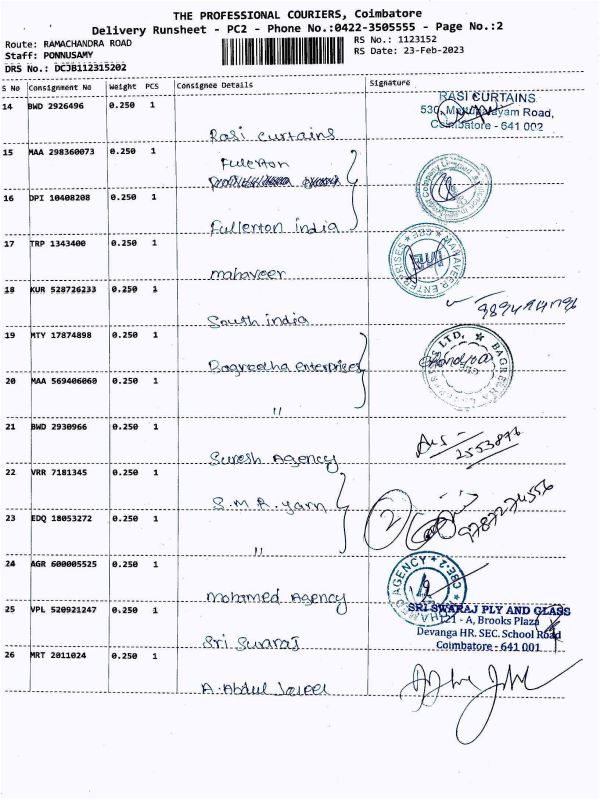 THE PROFESSIONAL COURIERS, Coimbatore
Delivery Runsheet - PC2 - Phone No.:0422-3505555 - Page No.:2
Route: RAMACHANDRA ROAD
Staff: PONNUSAMY
DRS No.: DCJB112315202
RS No.: 1123152
RS Date: 23-Feb-2023
S No Consignment No Weight PCS Consignee Details Signature
14 BWD 2926496 0.250 1
Rasi Curtains
RASI CURTAINS
Coimbatore - 641 002
15 MAA 298360073 0.250 1
Fullerton
16 DPI 10408208 0.250 1
Fullerton india
17 TRP 1343400 0.250 1
mahaveer
MAHAVEER ENTERPRISES CBE
18 KUR 528726233 0.250 1
South india
19 MTY 17874898 0.250 1
Bagreecha enterprises
20 MAA 569406060 0.250 1
"
21 BWD 2930966 0.250 1
Suresh Agency
2553876
22 VRR 7181345 0.250 1
S.M.R. yarn
2
9787274556
23 EDQ 18053272 0.250 1
"
24 AGR 600005525 0.250 1
mohamed Agency
MOHAMED AGENCY CBE-2
25 VPL 520921247 0.250 1
Sri Swaraj
SRI SWARAJ PLY AND GLASS
121 - A, Brooks Plaza
Devanga HR. SEC. School Road
Coimbatore - 641 001
26 MRT 2011024 0.250 1
A. Abdul Jaleel